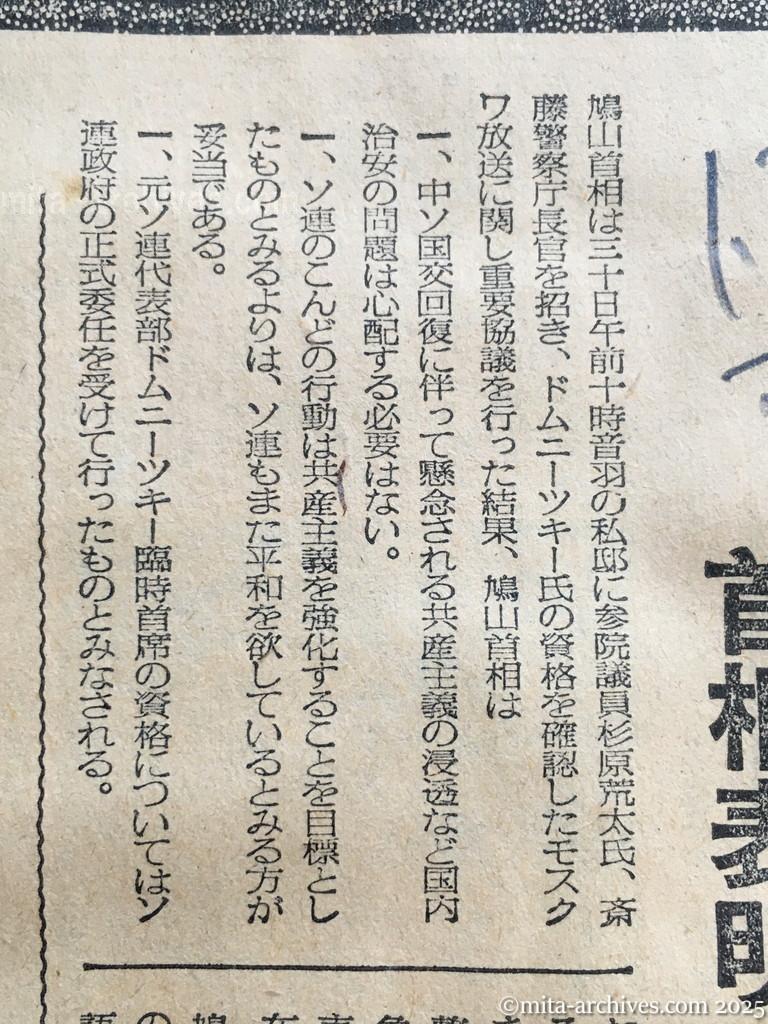 首相表明
鳩山首相は三十日午前十時音羽の私邸に参院議員杉原荒太氏、斎
藤警察庁長官を招き、ドムニーツキー氏の資格を確認したモスク
ワ放送に関し重要協議を行った結果、鳩山首相は
一、中ソ国交回復に伴って懸念される共産主義の浸透など国内
治安の問題は心配する必要はない。
一、ソ連のこんどの行動は共産主義を強化することを目標とし
たものとみるよりは、ソ連もまた平和を欲しているとみる方が
妥当である。
一、元ソ連代表部ドムニーツキー臨時首席の資格についてはソ
連政府の正式委任を受けて行ったものとみなされる。
©mita-archives.com 2025